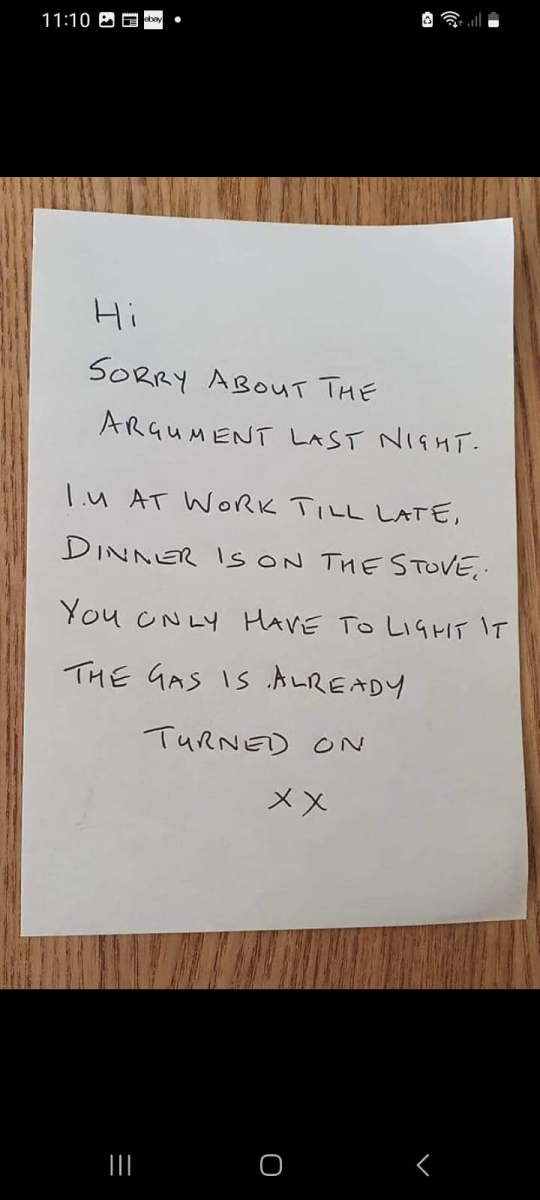 11:10 ebay
Hi
SORRY ABOUT THE
ARGUMENT LAST NIGHT.
I.M AT WORK TILL LATE,
DINNER IS ON THE STOVE,.
YOU ONLY HAVE TO LIGHT IT
THE GAS IS .ALREADY
TURNED ON
XX